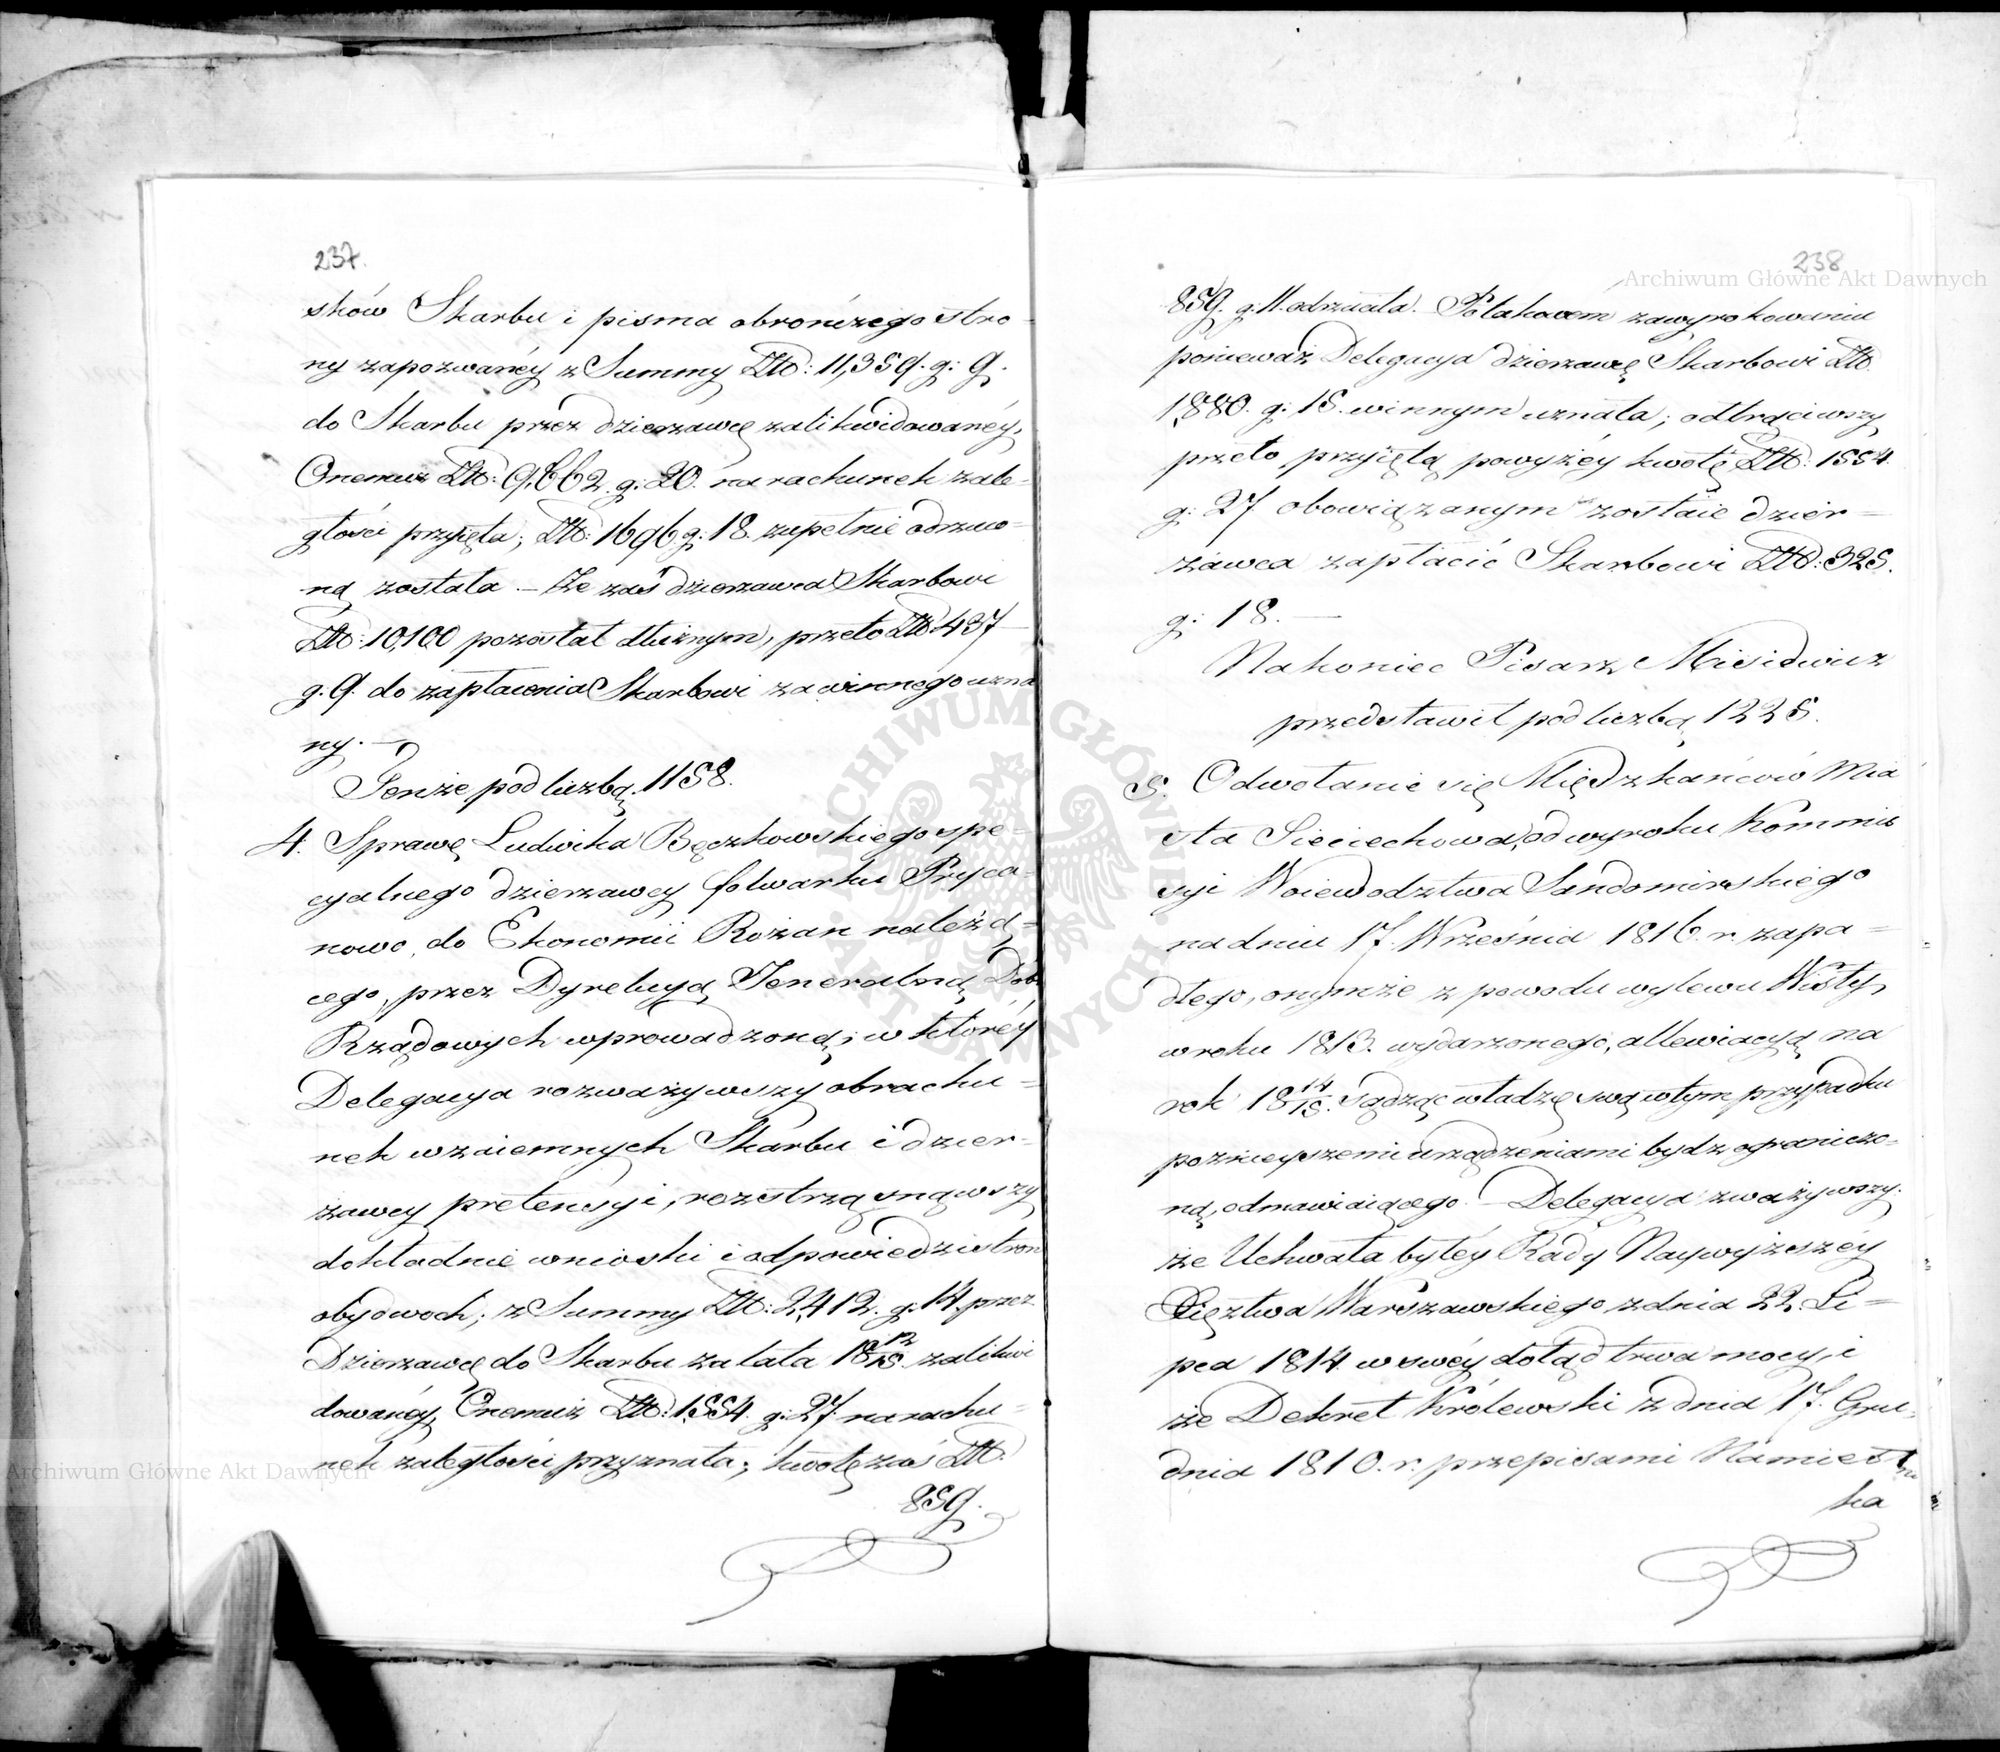 237.
sków Skarbu i pisma obrończego stro-
ny zapozwanéy z Summy Złt: 11,359. g: 9.
do Skarbu przez dzierzawcę zalikwidowanéy,
Onemuż Złt: 9,662. g: 20. na rachunek zale-
głości przyięta; Złt: 1696 g: 18. zupełnie odrzuco-
ną została. – Że zaś dzierzawca Skarbowi
Złt: 10,100 pozostał dłużnym, przeto Złt 437
g. 9. do zapłacenia Skarbowi za winnego uzna
ny. –
Tenże pod liczbą 1158.
4. Sprawę Ludwika Bęczkowskiego spe-
cyalnego dzierzawcy folwarku Pryca-
nowo, do Ekonomii Rożan należą-
cego, przez Dyrekcyą Jeneralną Dobr
Rządowych wprowadzoną; w któréy
Delegacya rozważywszy obrachu-
nek wzaiemnych Skarbu i dzier-
żawcy pretensyi, rozstrząsnąwszy
dokładnie wnioski i odpowiedzi stron
obydwoch; z Summy Złt: 2,412. g. 14. przez
Dzierzawcę do Skarbu za lata 18 12/15. zalikwi
dowanéy, Onemuż Złt: 1554. g: 27. na rachu-
nek zaległości przyznała; kwotę zaś Złt.
859.
238
859. g. 11. odrzuciła. Po takowém zawyrokowaniu
ponieważ Delegacya dzierzawcę Skarbowi Złt.
1880. g: 15. winnym uznała; odtrąciwszy
przeto przyiętą powyżéy kwotę Złt: 1554.
g: 27 obowiązanym zostaie dzier-
żawca zapłacić Skarbowi Złt: 325.
g: 18. –
Nakoniec Pisarz Misidwicz
przedstawił pod liczbą 1225.
5. Odwołanie się Mięszkańców Mia
sta Sieciechowa, od wyroku Kommis
syi Woiewodztwa Sandomirskiego
na dniu 17. Września 1816. r. zapa-
dłego, onymże z powodu wylewu Wisły,
w roku 1813. wydarzonego, allewiacyą na
rok 18 14/15. sądząc władzę swą w tym przypadku
poznieyszemi urządzeniami bydz ograniczo-
ną, odmawiaiącego. – Delegacya zważywszy
że Uchwała byłéy Rady Naywyższéy
Xięztwa Warszawskiego z dnia 22. Li-
pca 1814 w swéy dotąd trwa mocy, i
że Dekret Królewski z dnia 17. Gru-
dnia 1810. r. przepisami Namiestni
ka
Archiwum Główne Akt Dawnych
Archiwum Główne Akt Dawnych
ARCHIWUM GŁÓWNE AKT DAWNYCH